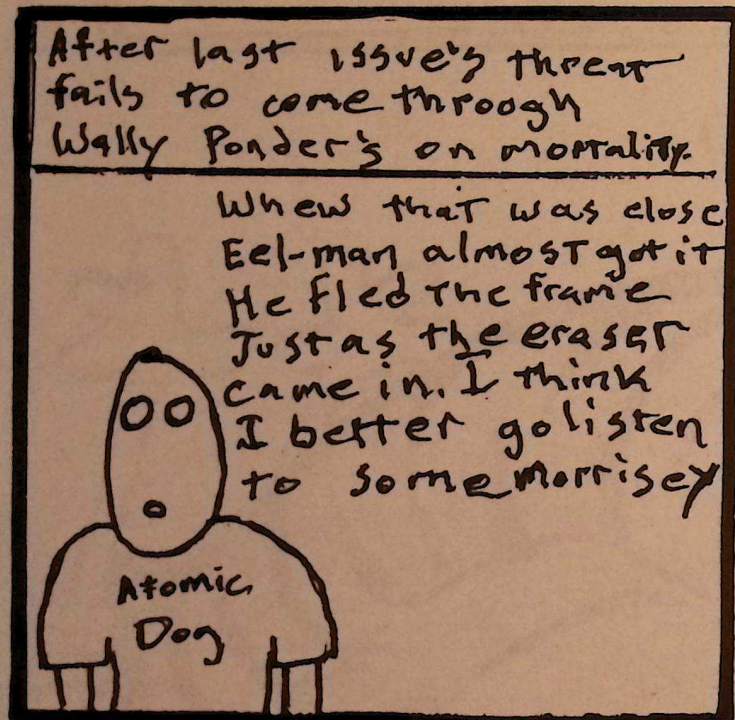 After last issue's threat
fails to come through
Wally Ponder's on mortality.
Whew that was close
Eel-man almost got it
He fled the frame
Just as the eraser
came in. I think
I better go listen
to some morrisey
Atomic
Dog